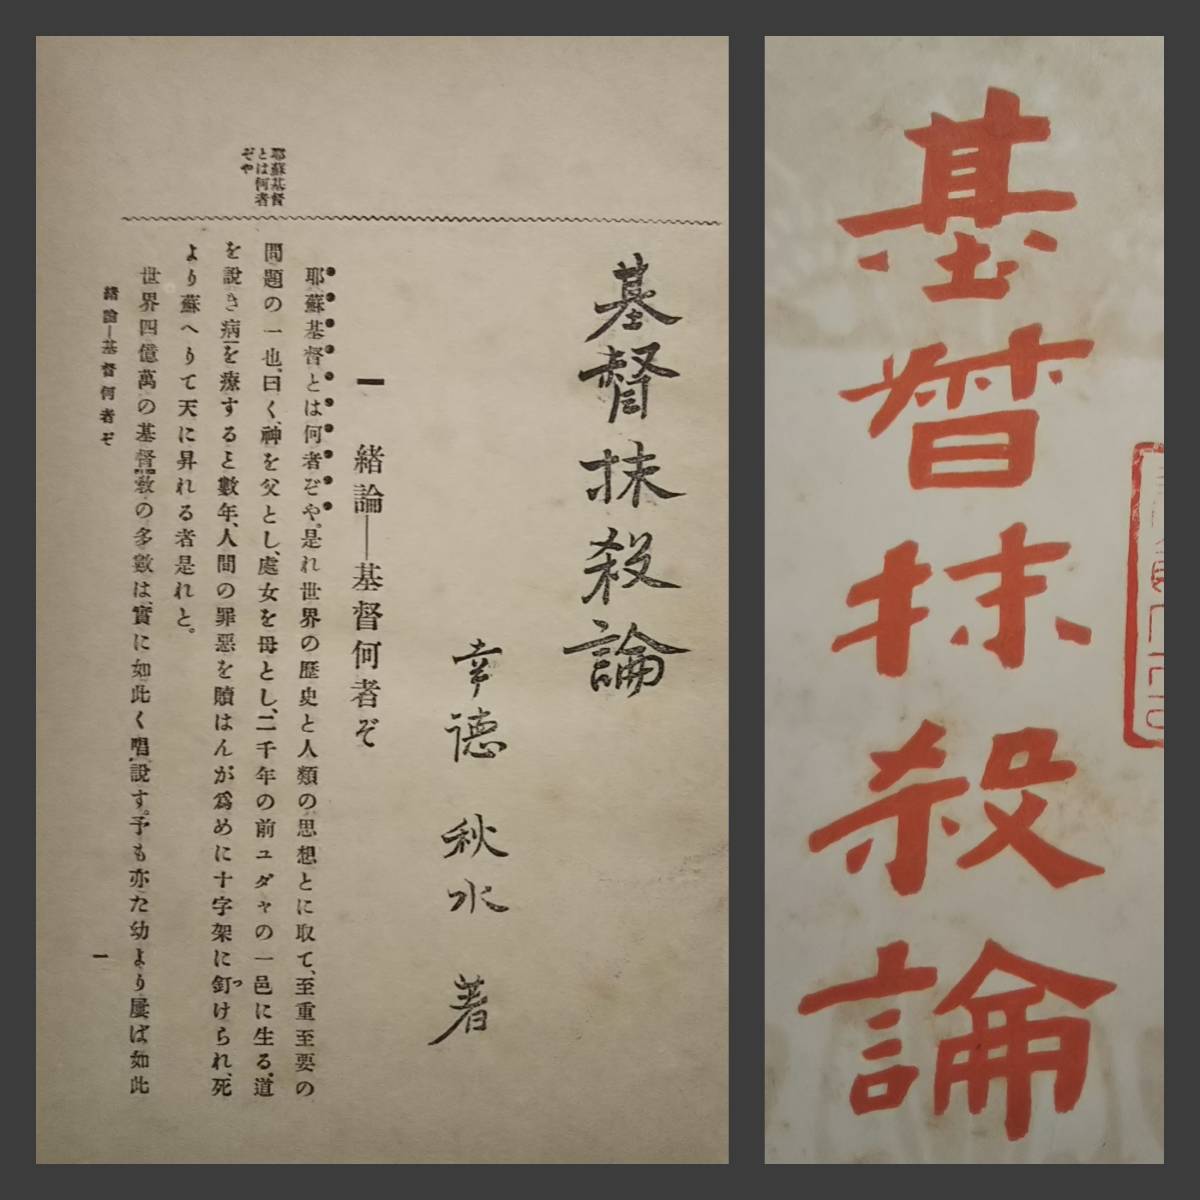 基督抹殺論
幸德 秋水 著
耶蘇基督
とは何者
ぞや
一 緒論―基督何者ぞ
耶蘇基督とは何者ぞや。是れ世界の歷史と人類の思想とに取て、至重至要の
問題の一也、曰く、神を父とし、處女を母とし、二千年の前ユダヤの一邑に生る、道
を說き病を療すると數年、人間の罪惡を贖はんが爲めに十字架に釘けられ、死
つ
より蘇へりて天に昇れる者是れと。
世界四億萬の基督敎の多數は、實に如此く唱說す。予も亦た幼より屢ば如此
緖論―基督何者ぞ
一
基督抹殺論